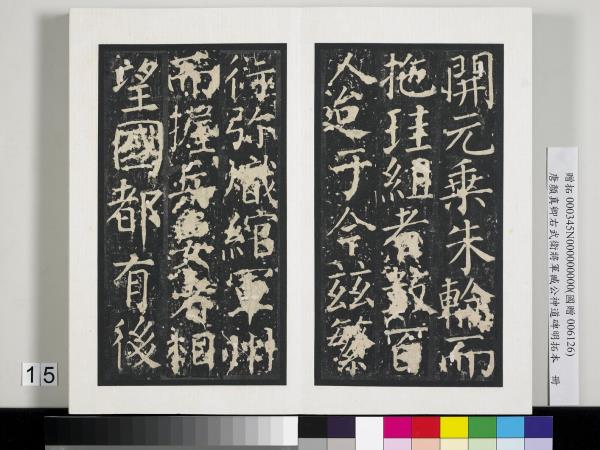 贈拓 000345N000000000(國贈 006126)
唐顏真卿右武衛將軍臧公神道碑明拓本 冊
開元乘朱輪而
拖珪組者數百
人迨于今茲繁
衍弥熾綰軍州
而握兵要者相
望國都有後
15